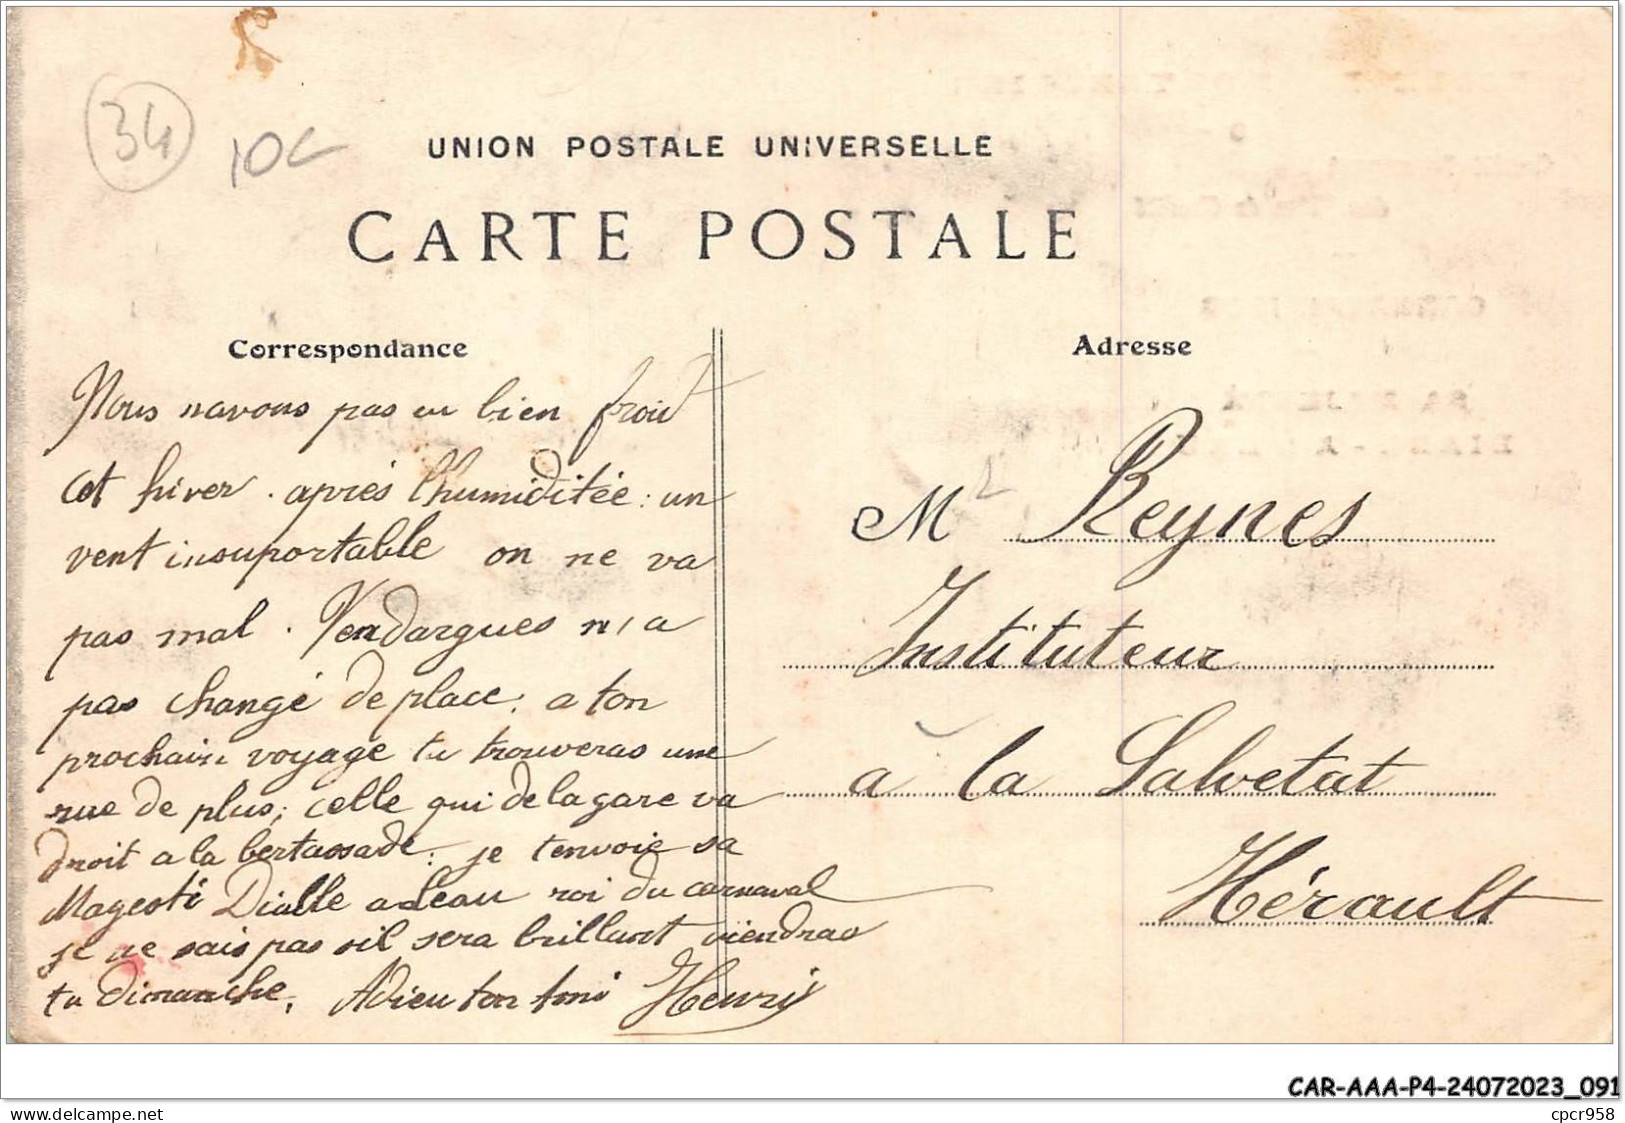 34
10c
UNION POSTALE UNIVERSELLE
CARTE POSTALE
Correspondance
Nous navons pas eu bien froid
cet hiver . après l'humiditée : un
vent insuportable on ne va
pas mal . Vendargues n'a
pas changé de place ; a ton
prochain voyage tu trouveras une
rue de plus ; celle qui de la gare va
droit a la bertassade : je t'envoie sa
Magesté Dialle roi du carnaval
je ne sais pas sil sera brillant viendras
tu dimanche. Adieu ton ami Henri
Adresse
Mr Reynes
Instituteur
a la Salvetat
Hérault
CAR-AAA-P4-24072023_091
cpcr958